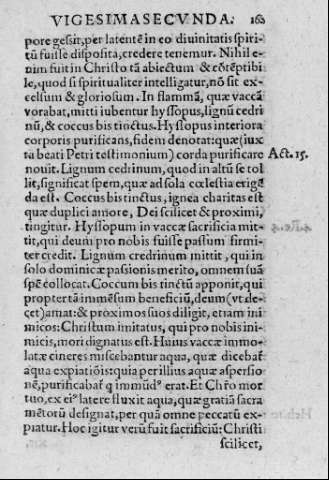 VIGESIMASECVNDA. 160
pore gessit, per latentẽ in eo diuinitatis spiri-
tũ fuisse disposita, credere tenemur. Nihil e-
nim fuit in Christo tã abiectum & cõtẽptibi
le, quod si spiritualiter intelligatur, nõ sit ex-
celsum & gloriosum. In flammã, quæ vaccã
vorabat, mitti iubentur hyssopus, lignũ cedri
nũ, & coccus bis tinctus. Hyssopus interiora
corporis purificans, fidem denotat: quæ (iux
ta beati Petri testimonium) corda purificare Act. 15.
nouit. Lignum cedrinum, quod in altũ se tol
lit, significat spem, quæ ad sola cœlestia erigẽ
da est. Coccus bis tinctus, ignea charitas est
quæ duplici amore, Dei scilicet & proximi,
tingitur. Hyssopum in vaccæ sacrificia mit-
tit, qui deum pro nobis fuisse passum firmi-
ter credit. Lignum credrinum mittit, qui in
solo dominicæ passionis merito, omnem suã
spẽ collocat. Coccum bis tinctũ apponit, qui
propter tã immẽsum beneficiũ, deum (vt de-
cet) amat: & proximos suos diligit, etiam ini
micos: Christum imitatus, qui pro nobis ini-
micis, mori dignatus est. Huius vaccæ immo-
latæ cineres miscebantur aqua, quæ dicebat̃
aqua expiatiõis: quia per illius aquæ aspersio
nẽ, purificabat̃ q immũdꝰ erat. Et Chr̃o mor
tuo, ex eiꝰ latere fluxit aqua, quæ gratiã sacra
mẽtorũ designat, per quã omne peccatũ ex-
piatur. Hoc igitur verũ fuit sacrificiũ: Christi
scilicet,